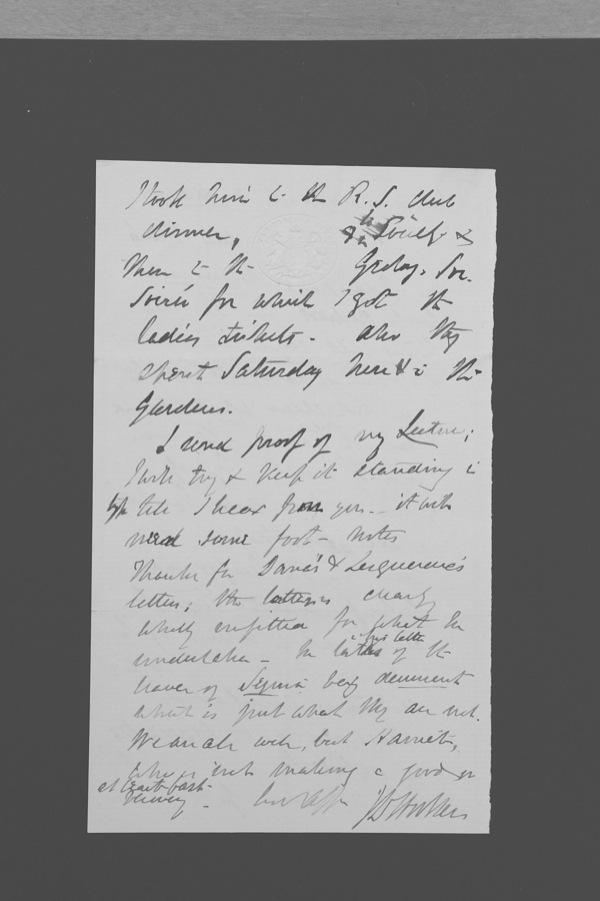 I took him to the R. S. Club
dinner, & to Society &
then to the Geolog. Soc.
Soirée for which I got the
ladies tickets. also they
spent Saturday here & in the
Gardens.
I send proof of my Lecture;
I will try & keep it standing in
type till I hear from you. it will
need some foot-notes
Thanks for Dana's & Lesquereux's
letters; the latter is clearly
wholly unfitted for what he
undertakes - he talks in his letter of the
leaves of being
which is just what they are not.
We are all well, but Harriet,
who is not making a good or
at least fast
recovery - Ever Aff
J D Hooker